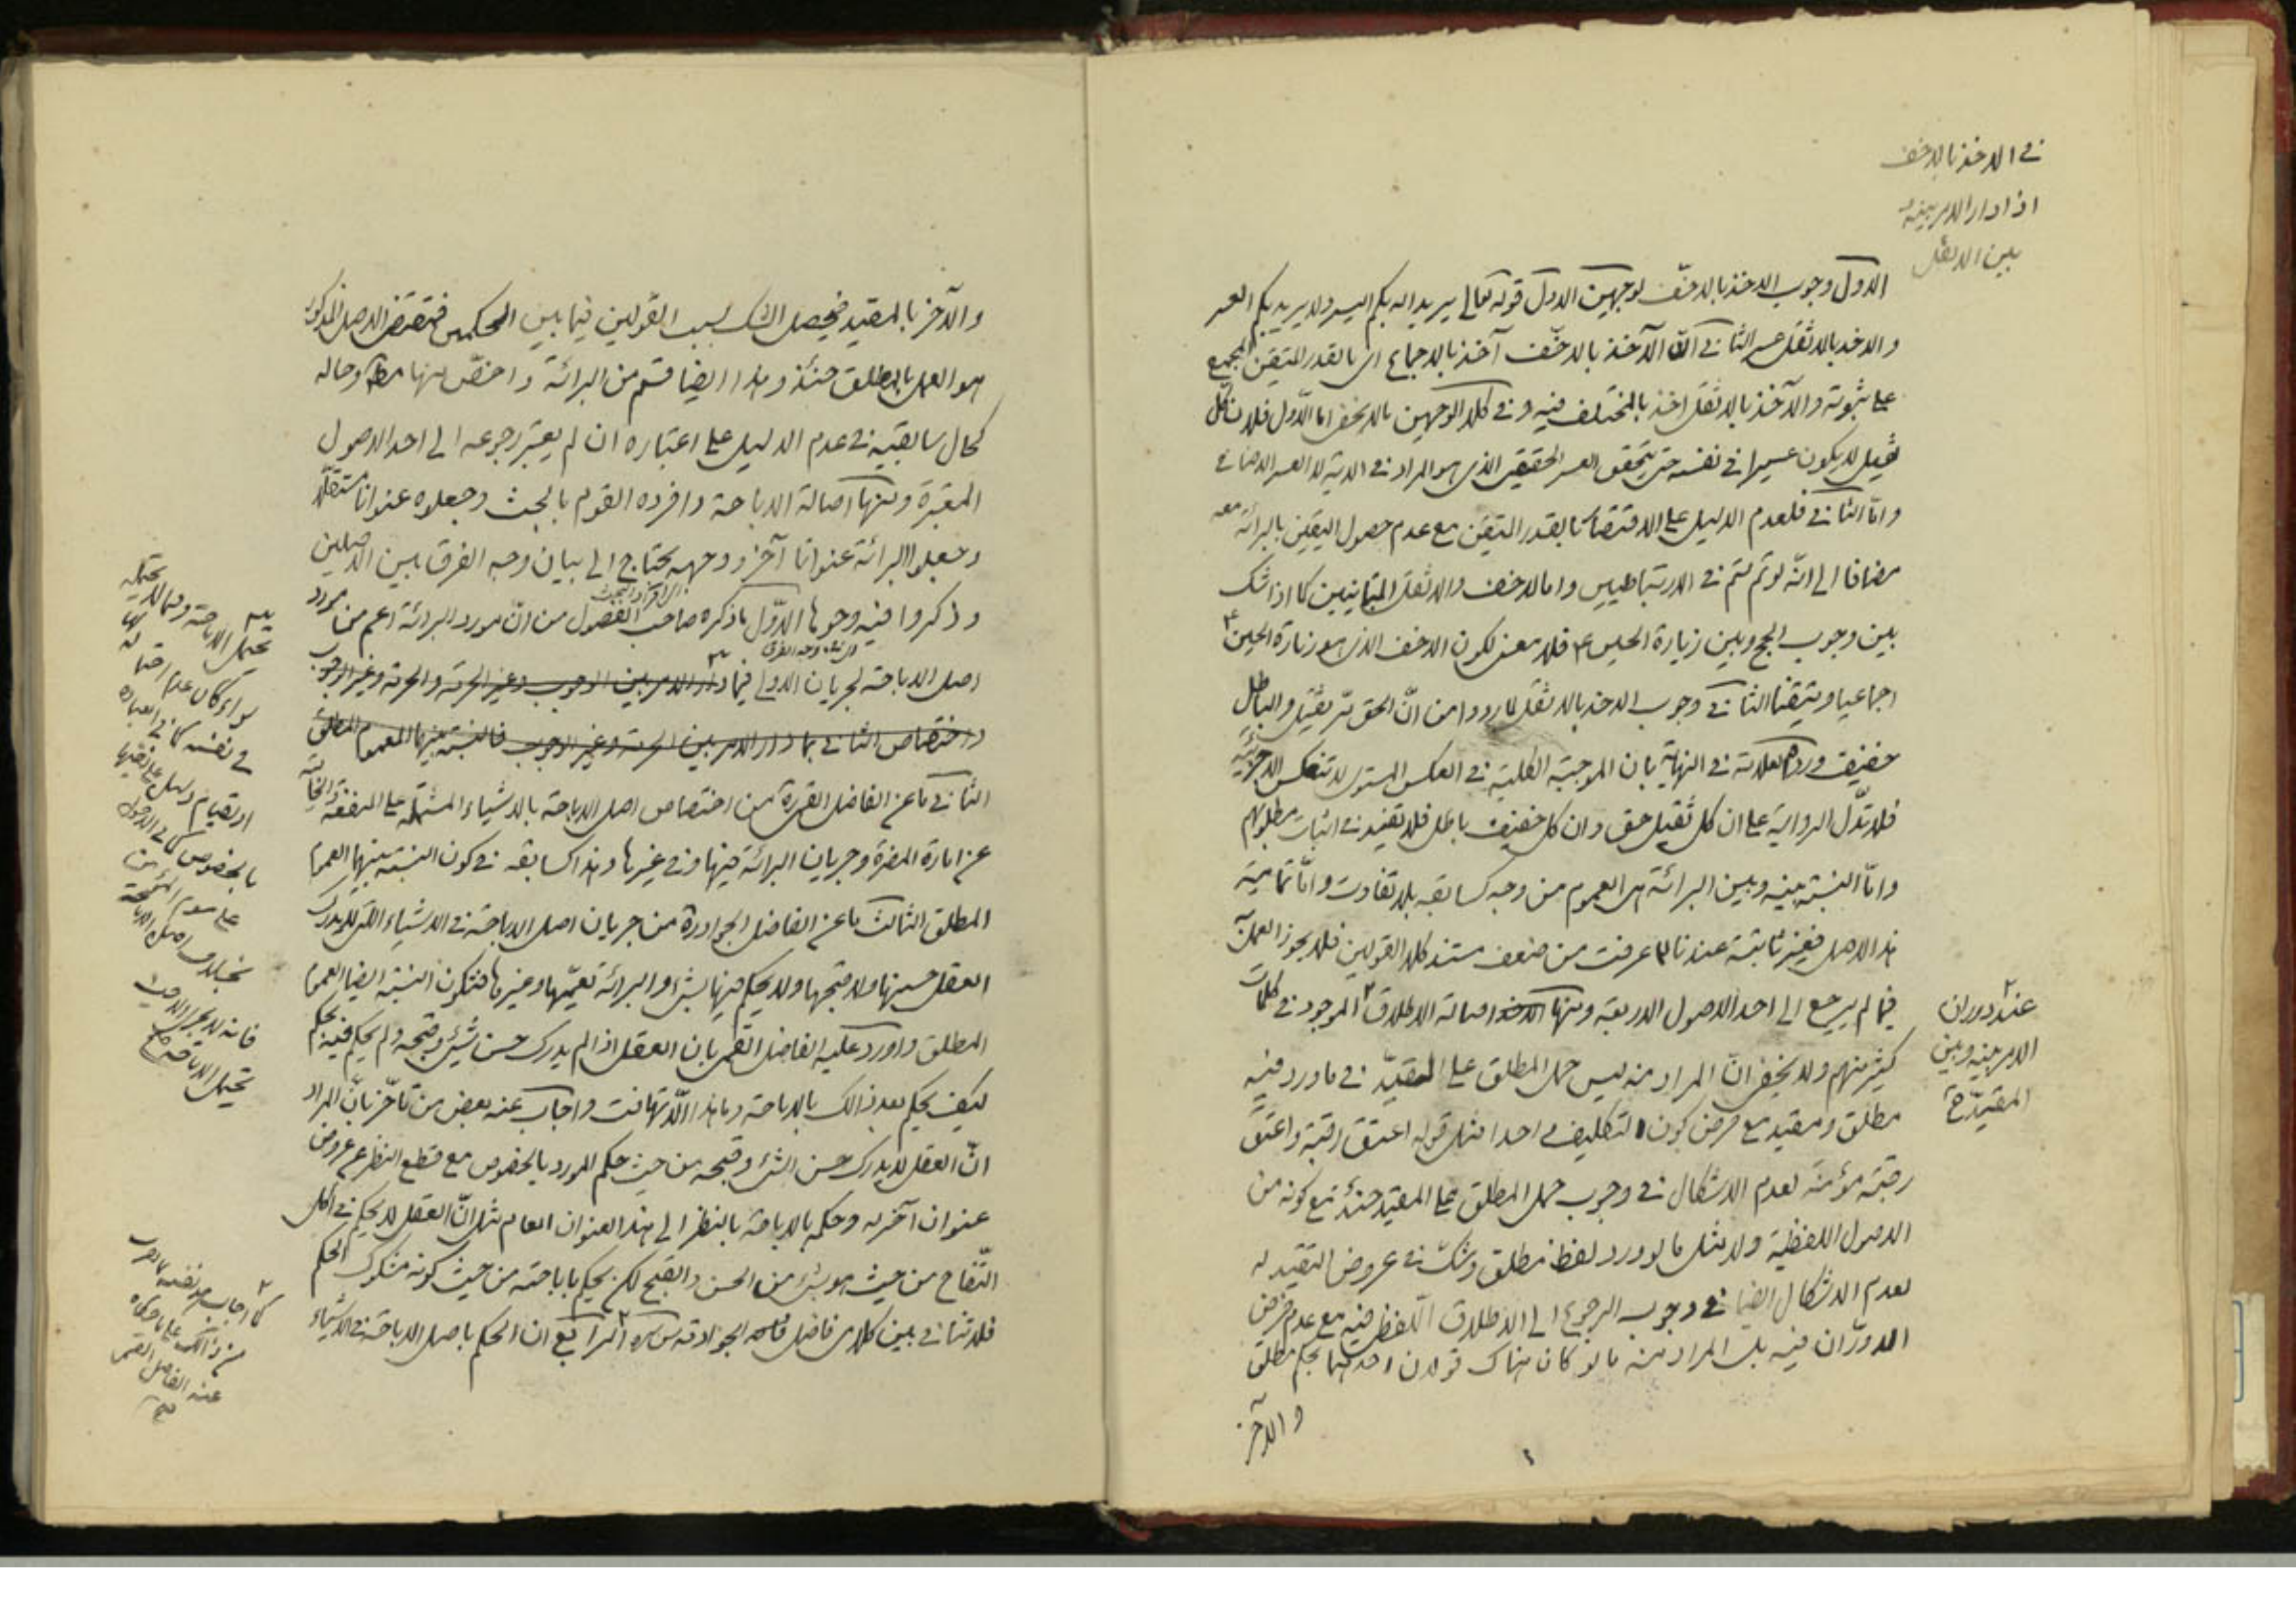 في الاخذ بالاخف
اذا دار الامر بينه و
بين الاثقل
الاول وجوب الاخذ بالاخفّ لوجهين الاول قوله تعالى يريد الله بكم اليسر ولا يريد بكم العسر
والاخذ بالاثقل عسر الثاني انّ الآخذ بالاخفّ آخذ بالاجماع اى بالقدر المتيقن المجمع
على ثبوته والآخذ بالاثقل اخذ بالمختلف فيه وفي كلا الوجهين ما لا يخفى اما الاول فلان كل
ثقيل لا يكون عسيرا في نفسه حتى يتحقق العسر الحقيقى الذى هو المراد في الآية لا العسر الاضافي
وامّا الثاني فلعدم الدليل على الاقتضاء بالقدر المتيقن مع عدم حصول اليقين بالبرائة معه
مضافا الى انّه لو تم لتم في الارتباطيين واما الاخف والاثقل المتباينين كما اذا شك
بين وجوب الحج وبين زيارة الحسين ع فلا معنى لكون الاخف الذى هو زيارة الحسين ع
اجماعيا ومتيقنا الثاني وجوب الاخذ بالاثقل لما ورد من انّ الحق ثقيل والباطل
خفيف ورده العلامة في النهاية بان الموجبة الكلية في العكس المستوى لا تنعكس الا جزئية
فلا تدّل الرواية على ان كل ثقيل حق وان كل خفيف باطل فلا تفيد في اثبات مطلوبهم
وامّا النسبة بينه وبين البرائة هى العموم من وجه كسابقه بلا تفاوت وامّا تمامية
هذا الاصل فغير ثابتة عندنا لما عرفت من ضعف مستند كلا القولين فلا يجوز العمل
فيما لم يرجع الى احد الاصول الاربعة ومنها اصالة الاطلاق الموجود في كلمات
عند دوران
الامر بينه وبين
المقيّد
كثير منهم ولا يخفى انّ المراد منه ليس حمل المطلق على المقيّد في ما ورد فيه
مطلق ومقيد مع فرض كون التكليف واحدا مثل قوله اعتق رقبة واعتق
رقبة مؤمنة لعدم الاشكال في وجوب حمل المطلق على المقيد حينئذ مع كونه من
الاصول اللفظية ولا مثل ما لو ورد لفظ مطلق وشكّ في عروض التقييد له
لعدم الاشكال ايضا في وجوب الرجوع الى الاطلاق اللفظى فيه مع عدم فرض
الدوران فيه بل المراد منه ما لو كان هناك قولان احدهما بحكم مطلق
والآخر
والآخر بالمقيد فيحصل الشك بسبب القولين فيما بين الحكمين فمقتضى الاصل المذكور
هو العمل بالمطلق حينئذ وهذا ايضا قسم من البرائة واخصّ منها مط وحاله
كحال سابقيه في عدم الدليل على اعتباره ان لم يعتبر رجوعه الى احد الاصول
المعتبرة ومنها اصالة الاباحة وافرده القوم بالبحث وجعلوه عنوانا مستقلّا
وجعلوا البرائة عنوانا آخر ووجهه يحتاج الى بيان وجه الفرق بين الاصلين
وذكروا فيه وجوها الاوّل ما ذكره صاحب الفصول من انّ مورد البرائة اعم من مورد
اصل الاباحة لجريان الاولى فيما دار الامر بين الوجوب وغير الحرمة والحرمة وغير الوجوب
واختصاص الثاني بما دار الامر بين الحرمة وغير الوجوب فالنسبة بينهما العموم المطلق
الثاني ما عن الفاضل القمى ره من اختصاص اصل الاباحة بالاشياء المشتملة على المنفعة الخالية
عن امارة المضرة وجريان البرائة فيها وفي غيرها وهذا كسابقه في كون النسبة بينهما العموم
المطلق الثالث ما عن الفاضل الجواد ره من جريان اصل الاباحة في الاشياء التى لا يدرك
العقل حسنها ولا قبحها ولا يحكم فيها بشئ والبرائة تعمّها وغيرها فتكون النسبة ايضا العموم
المطلق واورد عليه الفاضل القمى بان العقل اذا لم يدرك حسن شئ وقبحه ولم يحكم فيه بحكم
كيف يحكم بعد ذالك بالاباحة وما هذا الّا تهافت واجاب عنه بعض من تأخّر بانّ المراد
انّ العقل لا يدرك حسن الشئ وقبحه من حيث حكم المورد بالخصوص مع قطع النظر عن عروض
عنوان آخر له وحكمه بالاباحة بالنظر الى هذا العنوان العام مثل انّ العقل لا يحكم في اكل
التفّاح من حيث هو بشئ من الحسن والقبح لكن يحكم باباحته من حيث كونه مشكوك الحكم
فلا تنافي بين كلامى فاضل الجواد قدس سره الرابع ان الحكم باصل الاباحة في الاشياء
يحتمل الاباحة وما لا يحتمله
سواء كان عدم احتماله لها
في نفسه كما في العباده
او لقيام دليل على نفيها
بالخصوص كما في الدخول
على سوم المؤمن
بخلاف اصل الاباحة
فانه لا يجرى الا حيث
يحتمل الاباحة
كما اجاب هو نفسه
عن ذالك على ما حكاه
عنه الفاضل القمى